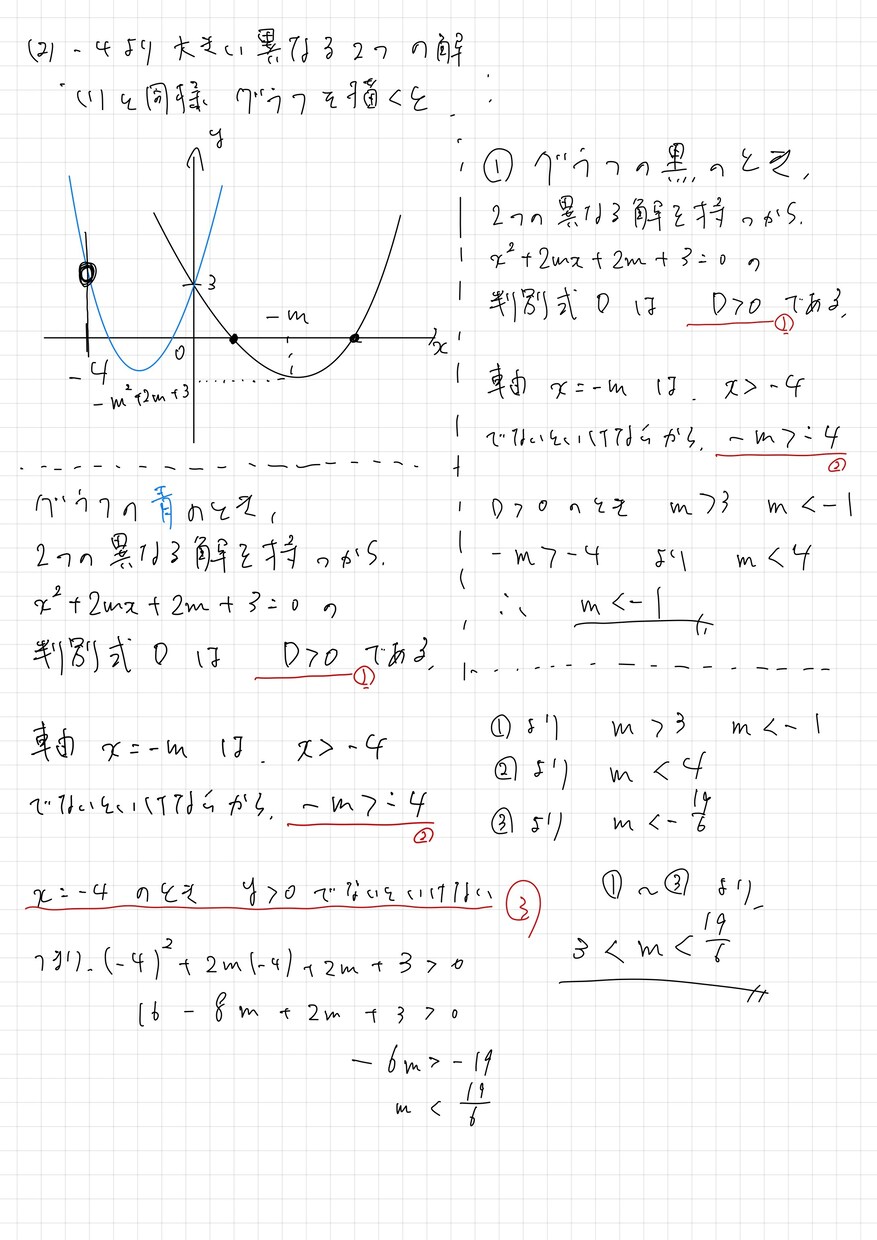 (2) -4より 大きい 異なる 2つ の解
(1)と同様 グラフを描くと
y
3
-m
0
x
-4
-m²+2m+3
グラフの青のとき,
2つの異なる解を持つから.
x²+2mx+2m+3=0 の
判別式 D は D>0 である,
①
軸 x=-m は. x>-4
でないといけないから, -m>-4
②
x=-4 のとき y>0 でないといけない ③
つまり. (-4)²+2m(-4)+2m+3>0
16-8m+2m+3>0
-6m>-19
m<19/6
① グラフの黒のとき,
2つの異なる解を持つから.
x²+2mx+2m+3=0 の
判別式 D は D>0 である,
①
軸 x=-m は. x>-4
でないといけないから, -m>-4
②
D>0 のとき m>3 m<-1
-m>-4 より m<4
∴ m<-1
① より m>3 m<-1
② より m<4
③ より m<-19/6
①~③ より
3<m<19/6